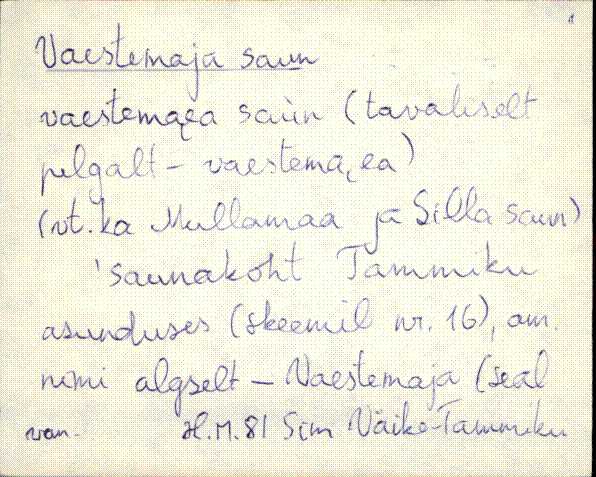 Vaestemaja saun
vaestemaea saun (tavaliselt
pelgalt - vaestema, ea)
(vt. ka Mullamaa ja Silla saun)
'saunakoht Tammiku
asunduses (skeemil nr. 16), am.
nimi algselt - Vaestemaja (seal
van. H.M. 81 Sim Väike-Tammiku